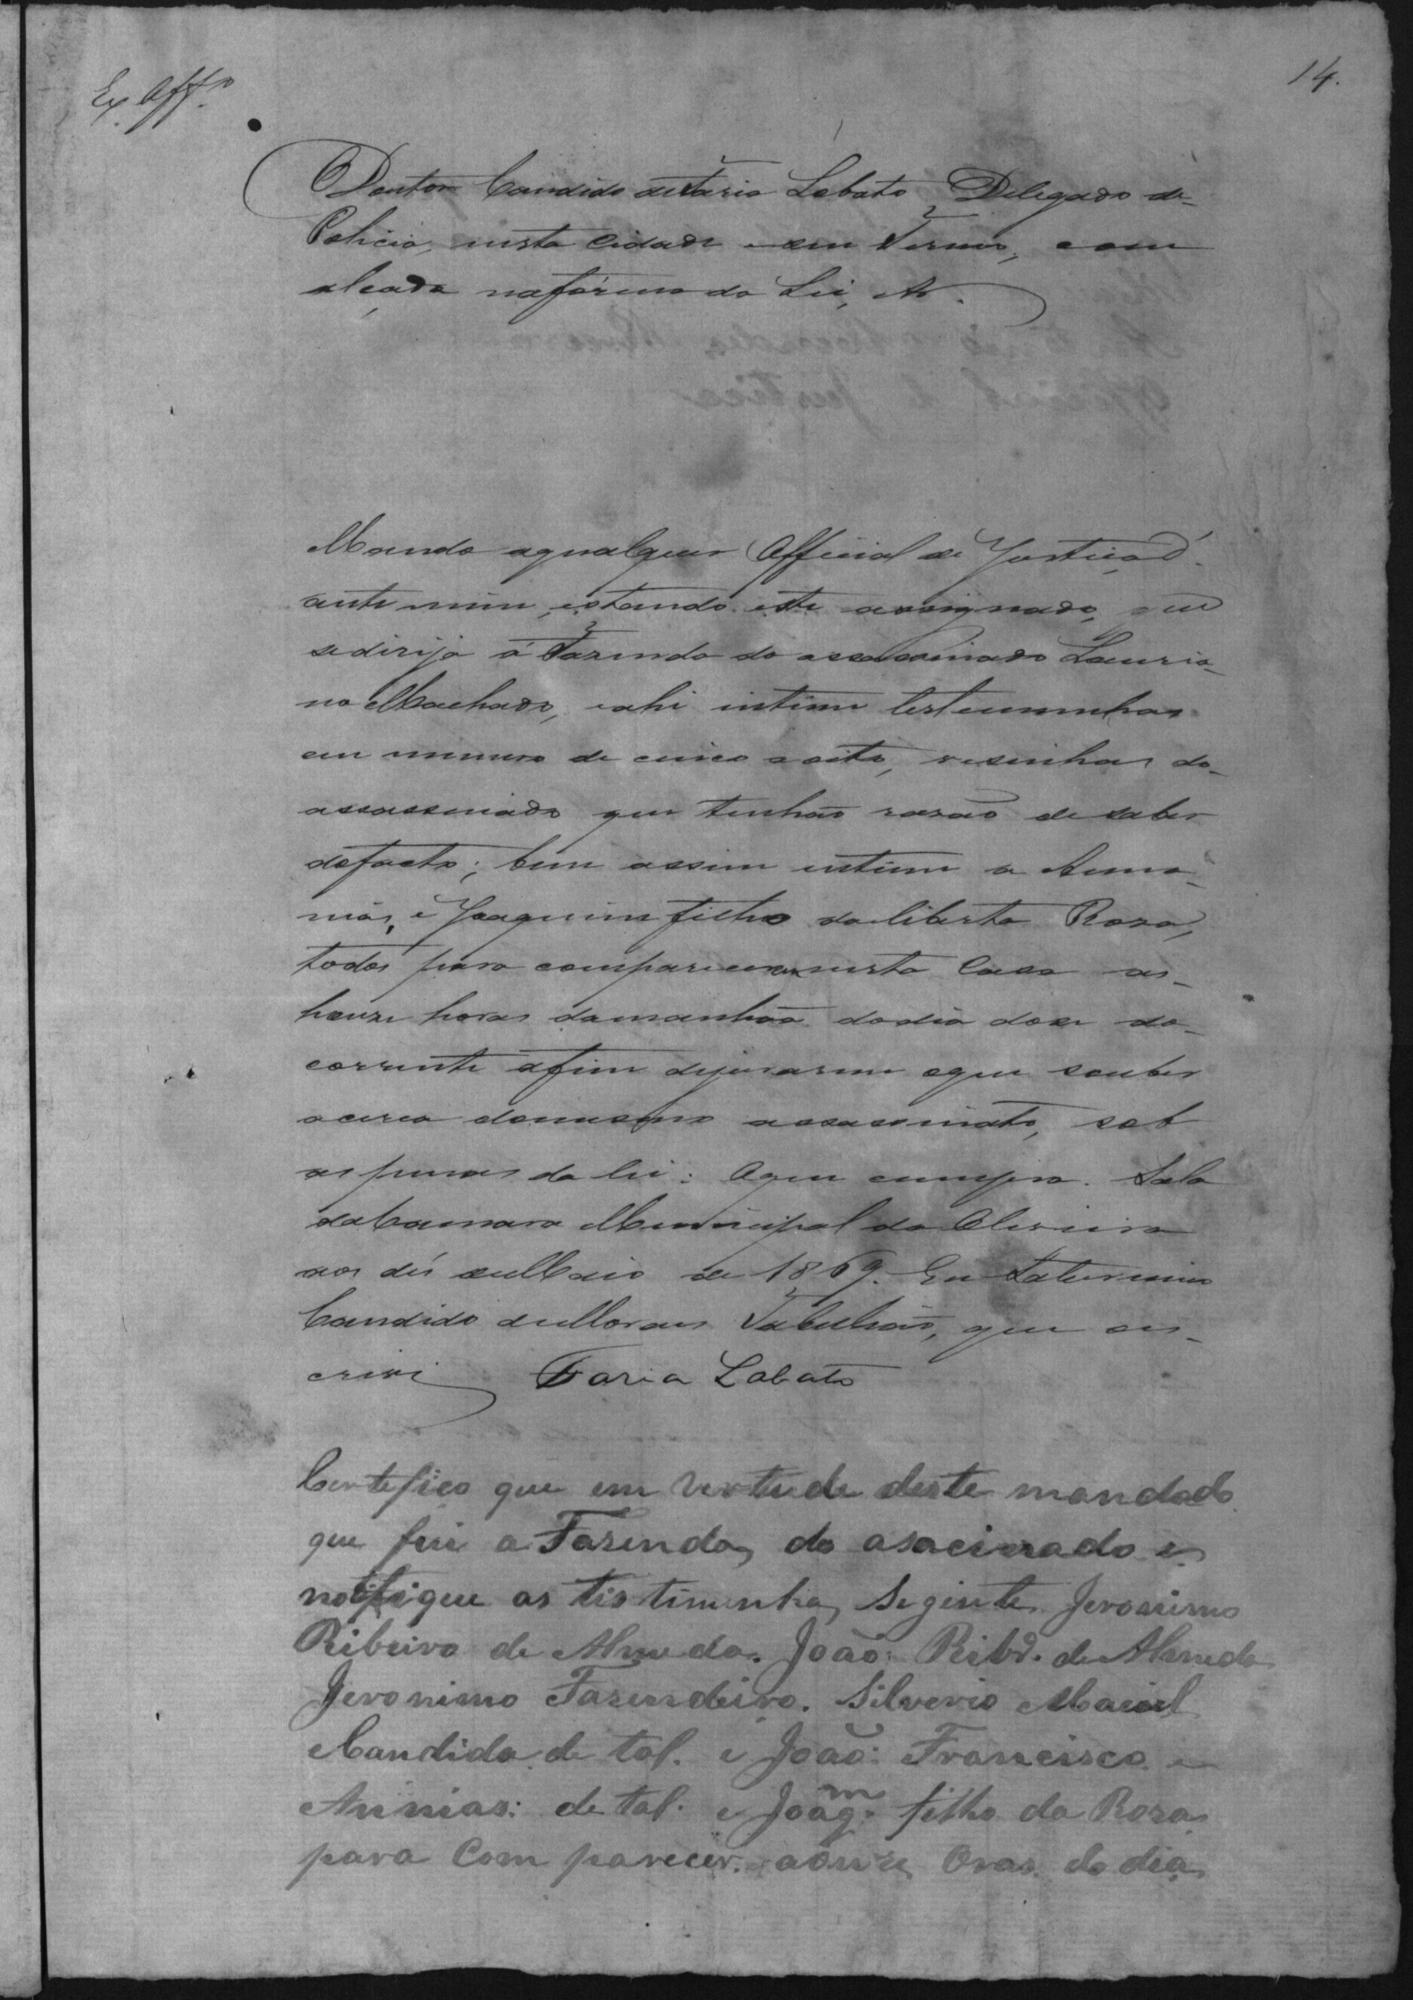 Ex. Off.º
14.
O Doutor Candido de Faria Lobato, Delegado de
Policia, nesta Cidade e seu Termo, com
alçada na fórma da Lei, &.
Mando a qualquer Official de Justiça d'
ante mim, estando este assignado, que
se dirija á Fazenda do assassinado Lauria-
no Machado, e ahi intime testemunhas
em numero de cinco a oito, vesinhas do
assassinado que tenhão rasão de saber
do facto; bem assim intime a Anna-
nias, e Joaquim filho da liberta Roza,
todos para comparecerem nesta Casa as
honze horas da manhãa do dia doze do
corrente afim de jurarem o que souber
acerca do mesmo assassinato, sob
as penas da lei: O que cumpra. Sala
da Camara Municipal da Oliveira
aos dés de Maio de 1869. Eu Saturnino
Candido de Moraes Tabelião, que es-
crivi Faria Lobato
Certefico que em vertude deste mandado
que fui a Fazenda, do asacinado e
notifique as tistimunha, Seginte Jeronimo
Ribeiro de Almeda. João: Ribr.º de Almeda
Jeronimo Fazendeiro. Silverio Maciel
Candido de tal. e João: Francisco e
Annias: de tal. e Joaqm. filho da Roza
para Com parecer. aonze Oras do dia